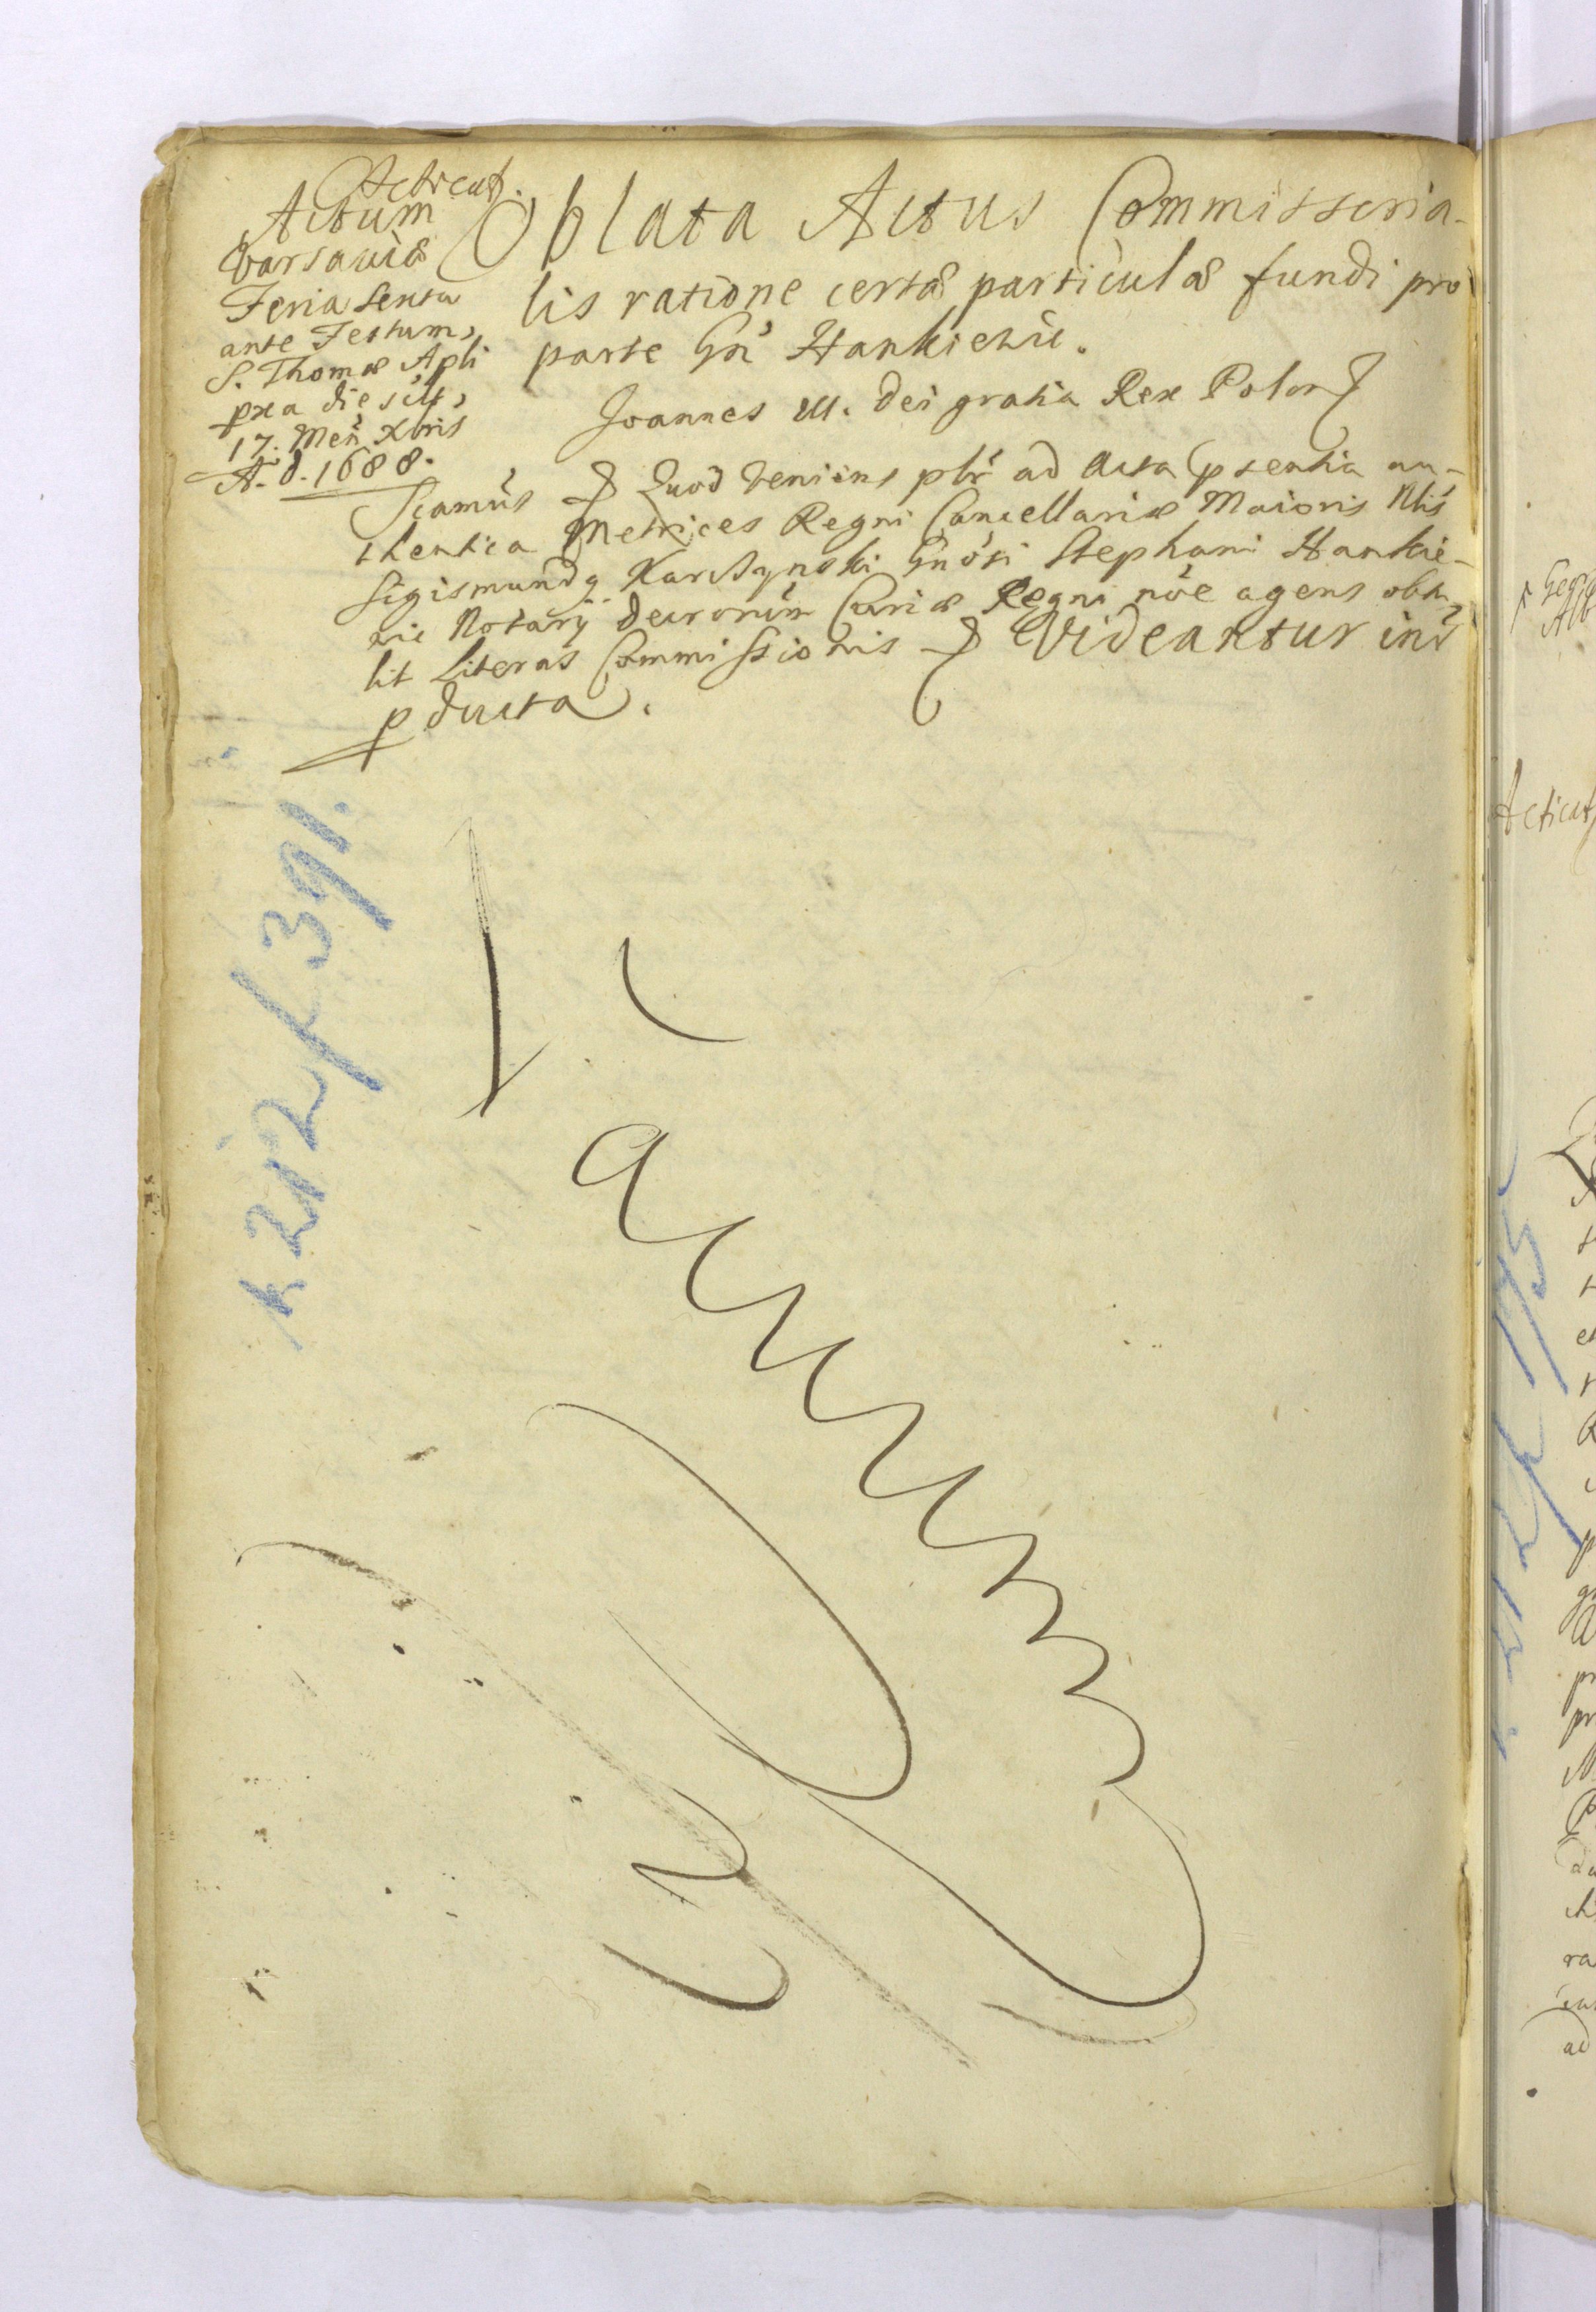 Acticat.
Actum
Varsaviæ
Feria Sexta
ante Festum
S. Thomæ Apli
pxa die scilt,
17. Men Xbris
A. d. 1688.
Oblata Actus Commissoria-
lis ratione certæ particulæ fundi pro
parte Gn̄ Hankiewic.
Joannes III. Dei gratia Rex Polon
Scamus Quod Veniens plr ad Acta psentia au-
thentica Metrices Regni Cancellariæ Maioris Nlis
Sigismundg Karczynski Gnosi Stephani Hankie-
wic Notarÿ Decrorum Curiæ Regni noe agens obtu-
lit Literas Commissionis Videantur int
pducta.
k 212/391.
Acticat